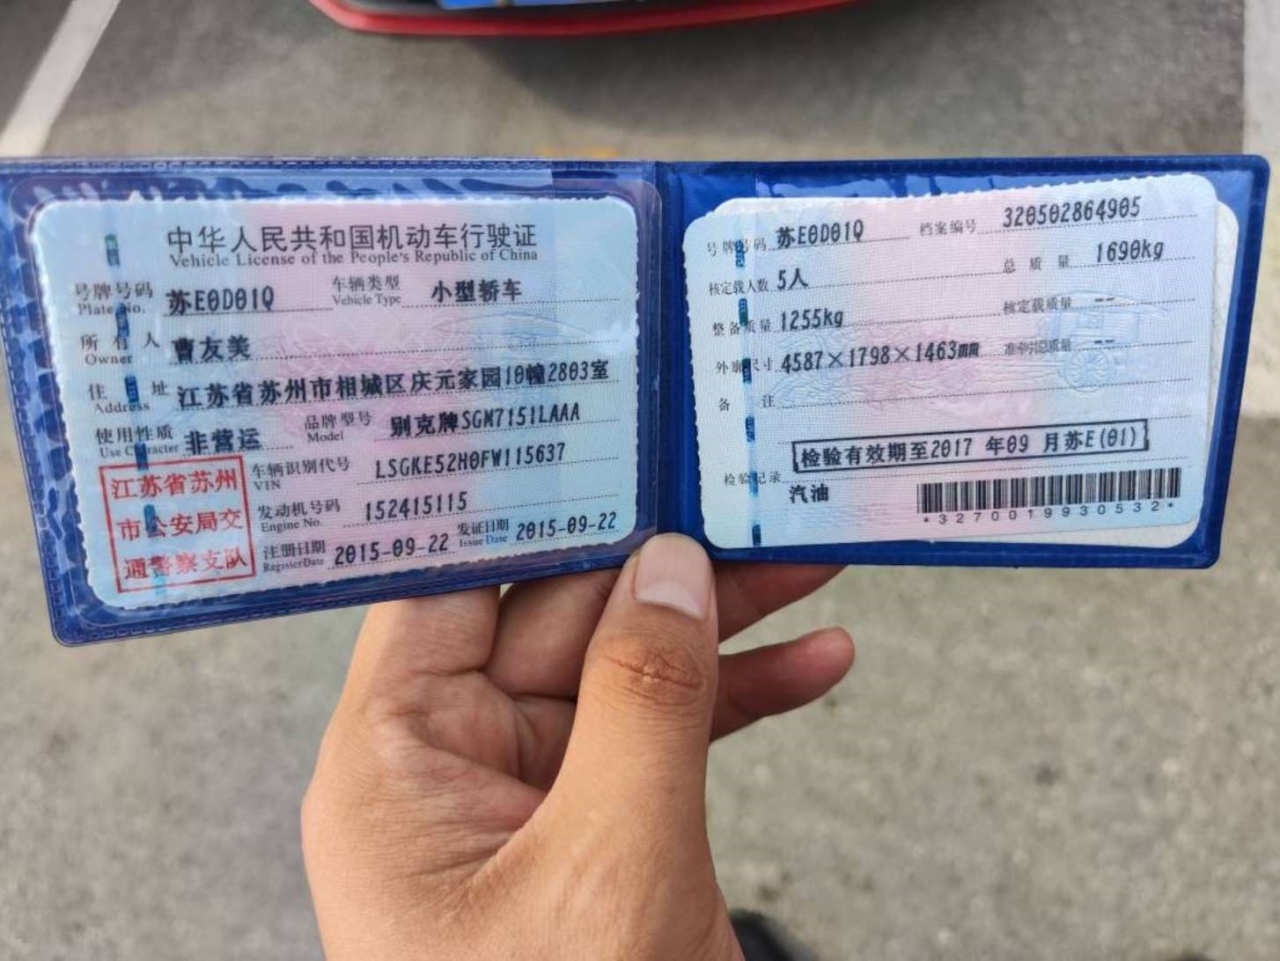 中华人民共和国机动车行驶证
Vehicle License of the People's Republic of China
号牌号码 苏E0D01Q 车辆类型 小型轿车
Plate No. Vehicle Type
所有人 曹友美
Owner
住址 江苏省苏州市相城区庆元家园10幢2803室
Address
使用性质 非营运 品牌型号 别克牌SGM7151LAAA
Use Character Model
江苏省苏州
市公安局交
通警察支队
车辆识别代号 LSGKE52H0FW115637
VIN
发动机号码 152415115
Engine No.
注册日期 2015-09-22 发证日期 2015-09-22
Register Date Issue Date
号牌号码 苏E0D01Q 档案编号 320502864905
核定载人数 5人 总质量 1690kg
整备质量 1255kg 核定载质量 --
外廓尺寸 4587×1798×1463mm 准牵引总质量 --
备注
检验有效期至2017 年09 月苏E(01)
检验记录
汽油
*3270019930532*